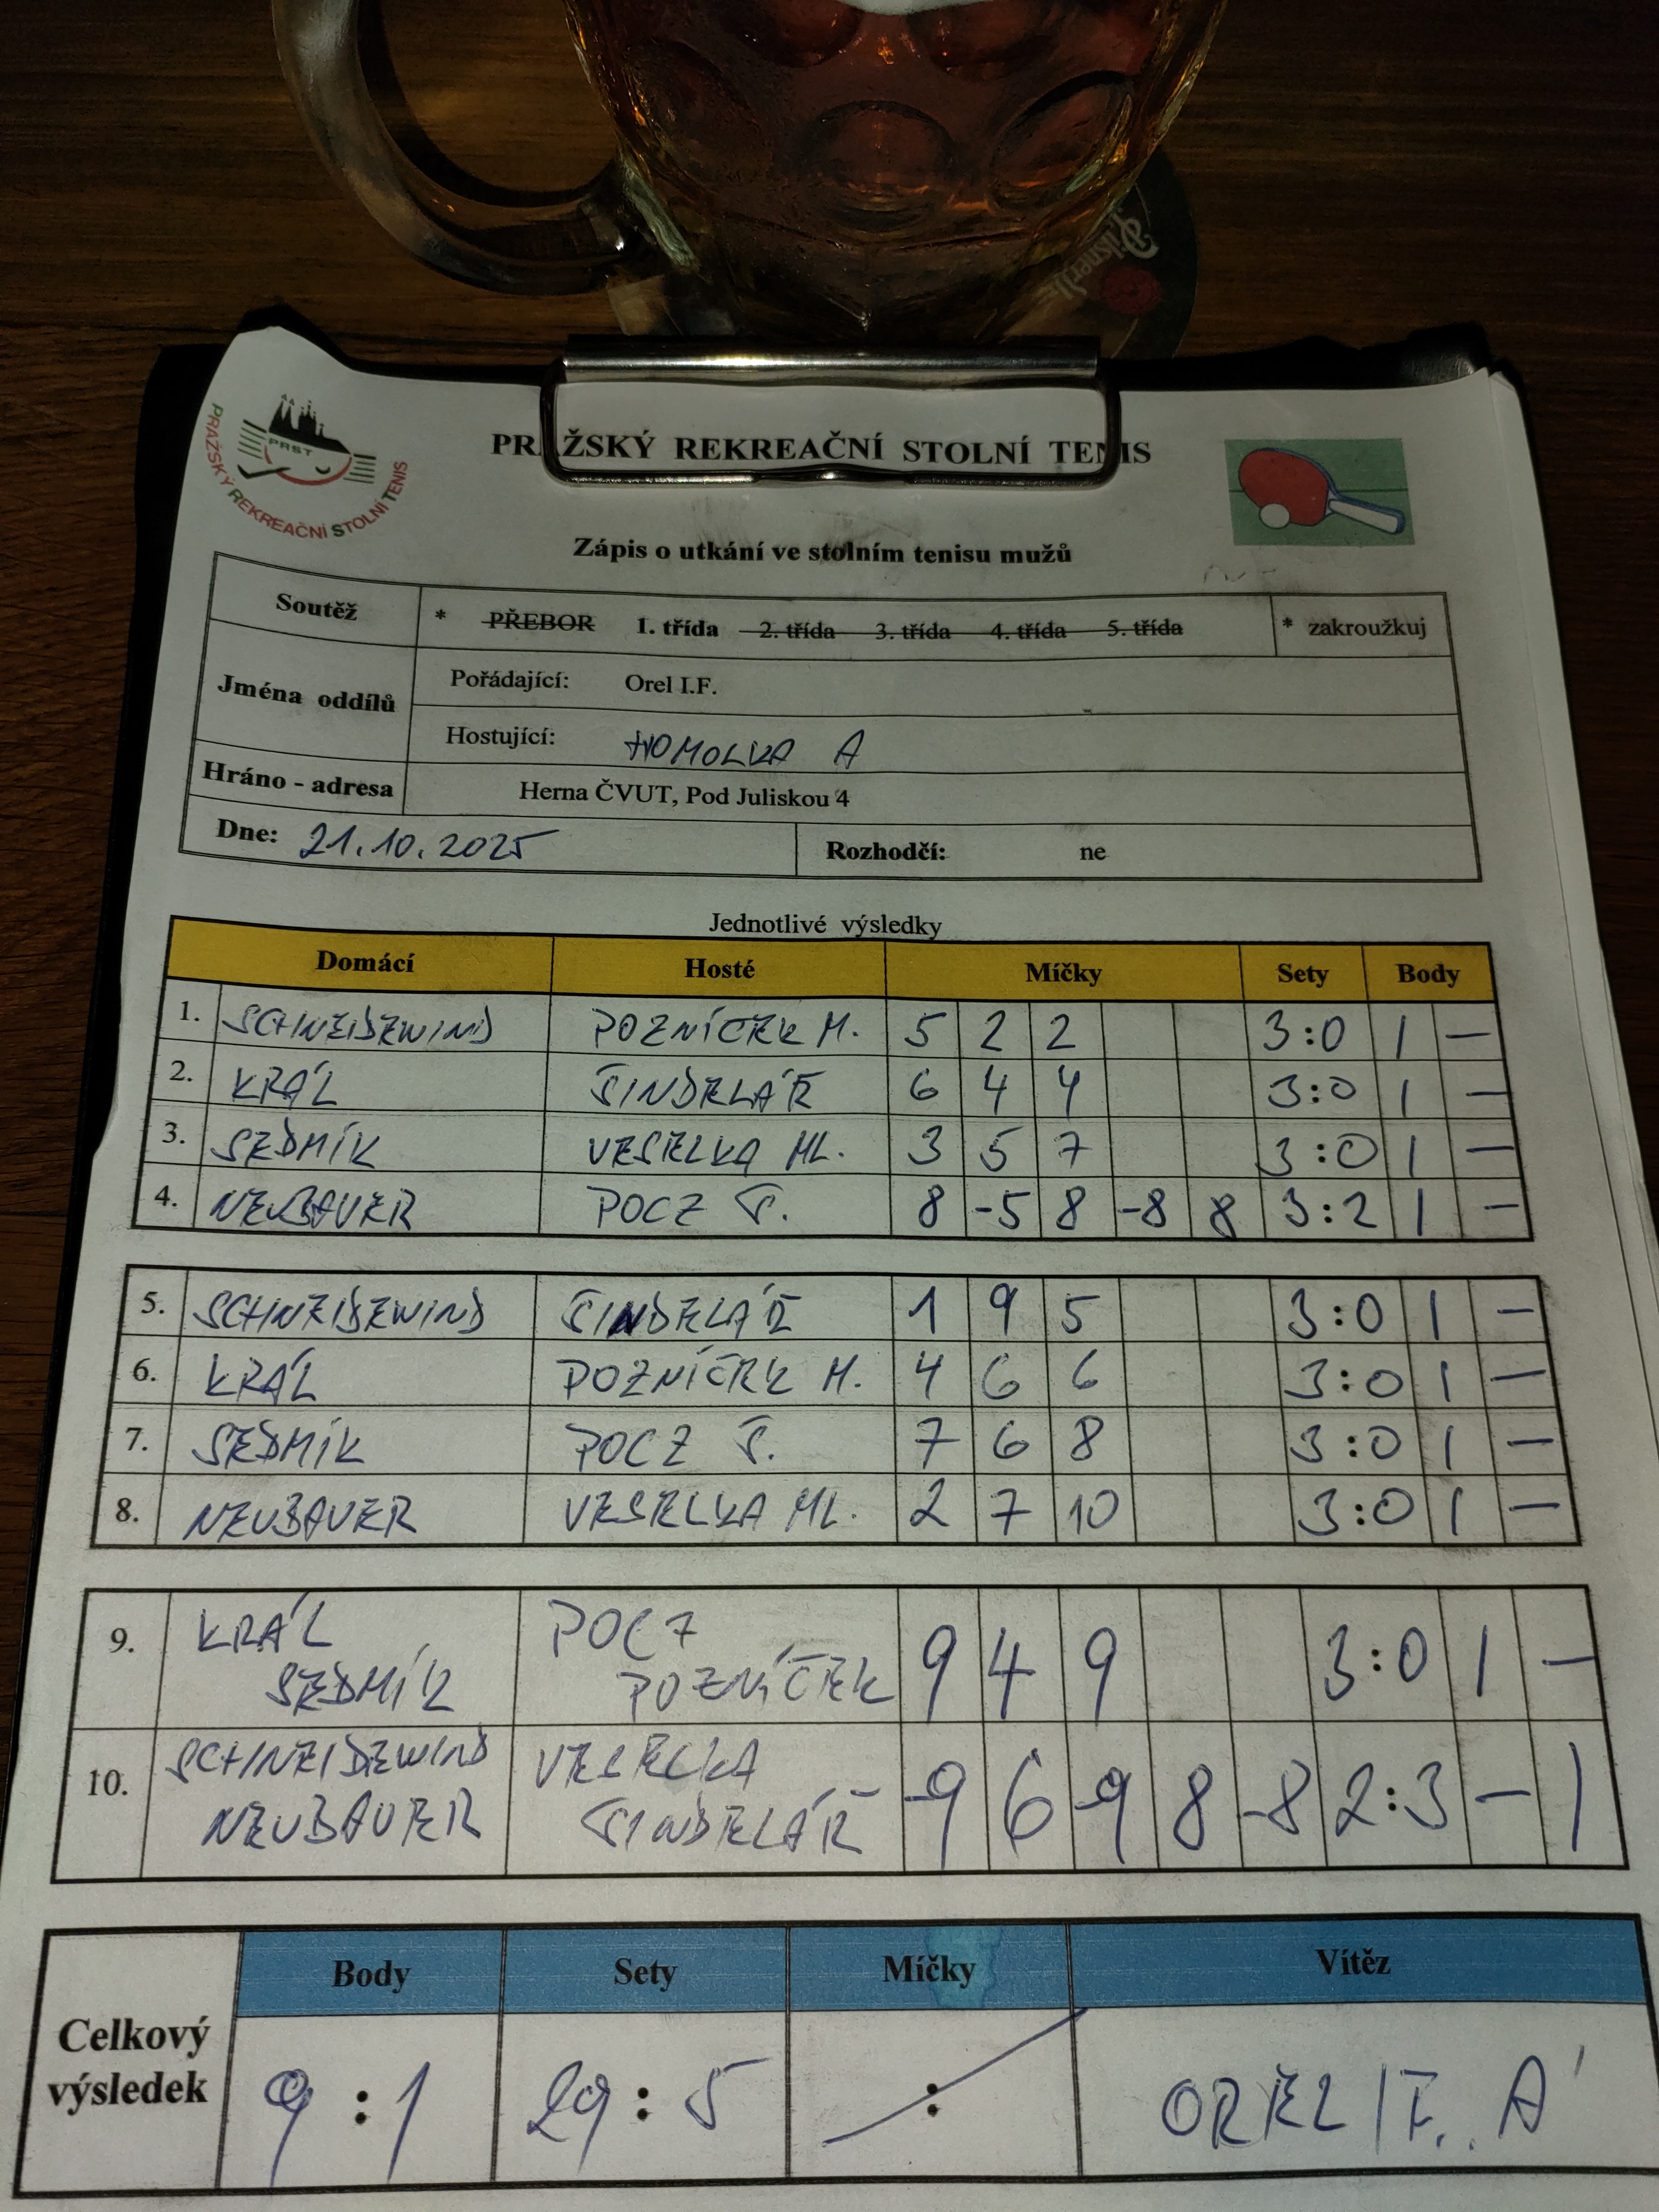 Pilsner
PRAŽSKÝ REKREAČNÍ STOLNÍ TENIS
PRST
PRAŽSKÝ REKREAČNÍ STOLNÍ TENIS
Zápis o utkání ve stolním tenisu mužů
Soutěž * PŘEBOR 1. třída 2. třída 3. třída 4. třída 5. třída * zakroužkuj
Jména oddílů Pořádající: Orel I.F.
Hostující: HOMOLKA A
Hráno - adresa Herna ČVUT, Pod Juliskou 4
Dne: 21.10.2025 Rozhodčí: ne
Jednotlivé výsledky
Domácí Hosté Míčky Sety Body
1. SCHNEIDEWIND POZNÍČEK M. 5 2 2 3:0 1 –
2. KRÁL ŠINDELÁŘ 6 4 4 3:0 1 –
3. SEDMÍK VESELKA ML. 3 5 7 3:0 1 –
4. NEUBAUER POCZ Š. 8 -5 8 -8 8 3:2 1 –
5. SCHNEIDEWIND ŠINDELÁŘ 1 9 5 3:0 1 –
6. KRÁL POZNÍČEK M. 4 6 6 3:0 1 –
7. SEDMÍK POCZ Š. 7 6 8 3:0 1 –
8. NEUBAUER VESELKA ML. 2 7 10 3:0 1 –
9. KRÁL POCZ 9 4 9 3:0 1 –
SEDMÍK POZNÍČEK
10. SCHNEIDEWIND VESELKA -9 6 -9 8 -8 2:3 – 1
NEUBAUER ŠINDELÁŘ
Celkový výsledek Body Sety Míčky Vítěz
9:1 29:5 : OREL I F. A